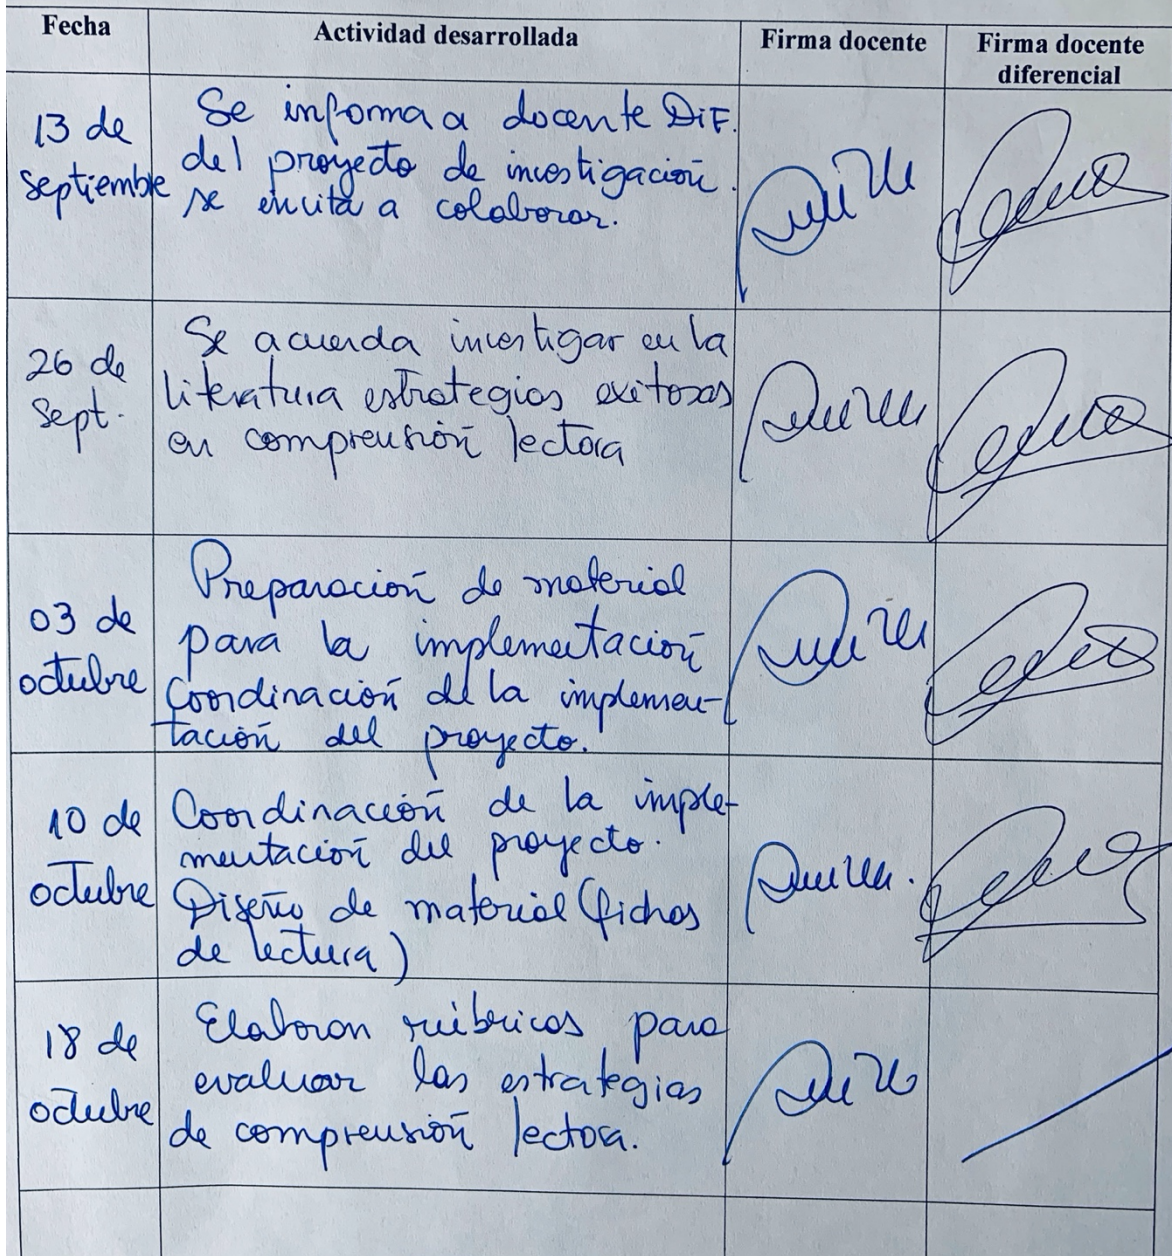 Fecha
Actividad desarrollada
Firma docente
Firma docente
diferencial
13 de
septiembre
Se informa a docente DIF.
del proyecto de investigación.
se invita a colaborar.
26 de
Sept.
Se acuerda investigar en la
literatura estrategias exitosas
en comprensión lectora
03 de
octubre
Preparación de material
para la implementación
Coordinación de la implemen-
tación del proyecto.
10 de
octubre
Coordinación de la imple-
mentación del proyecto.
Diseño de material (fichas
de lectura)
18 de
octubre
Elaboran rúbricas para
evaluar las estrategias
de comprensión lectora.